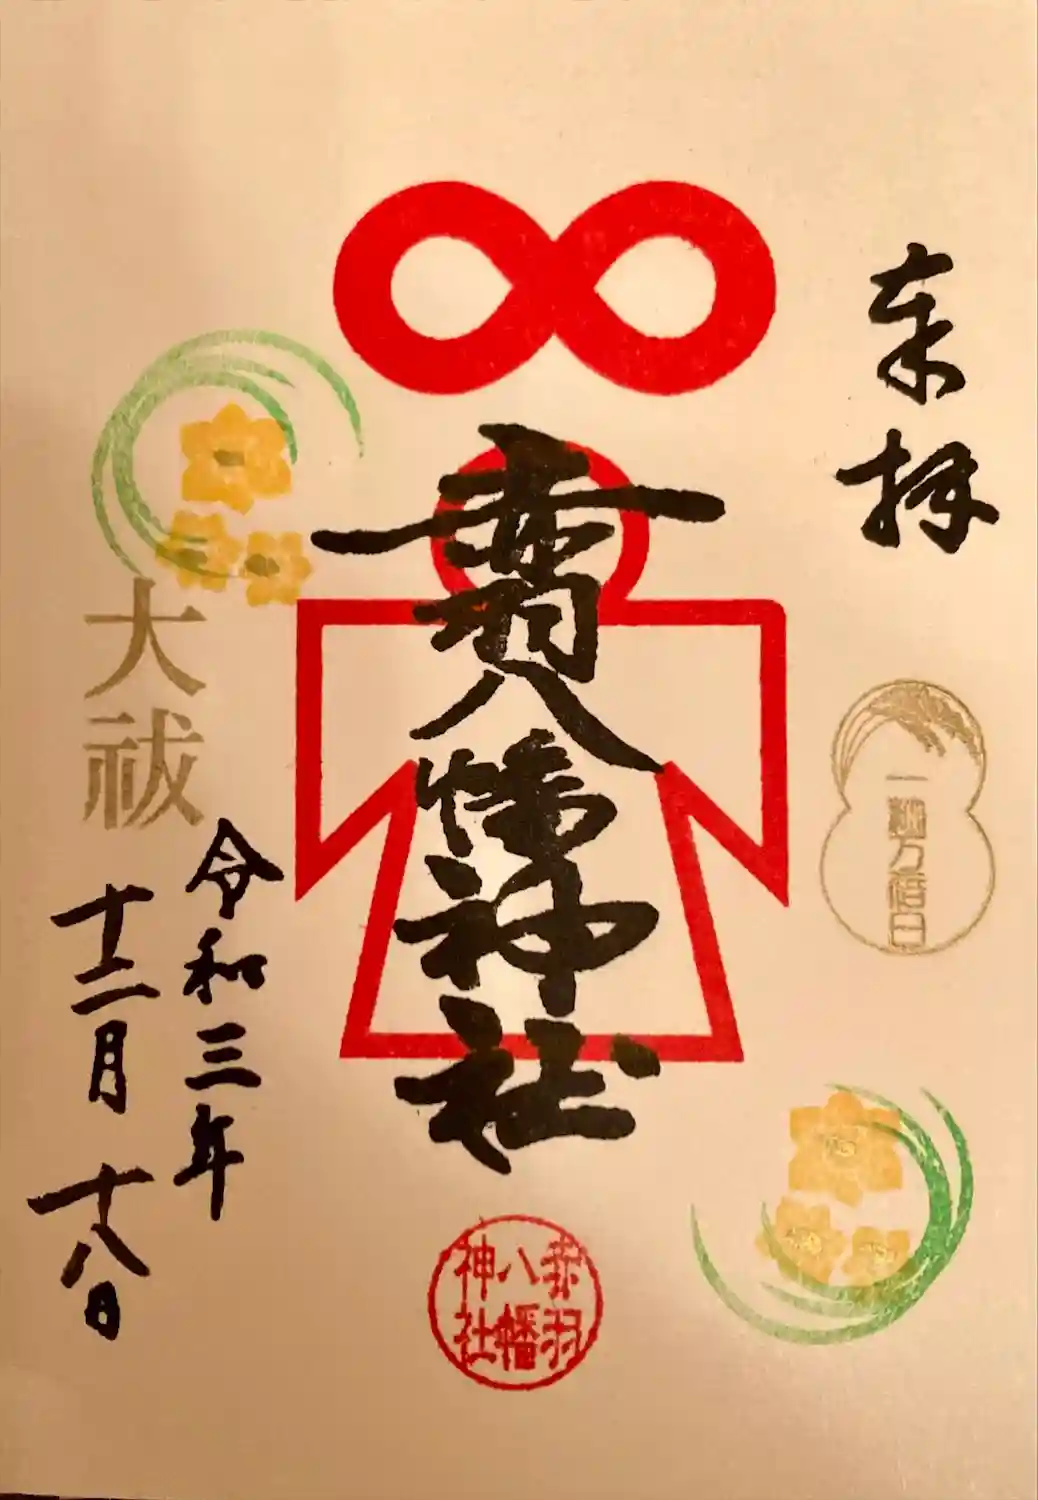 奉拝
一粒万倍日
赤羽八幡神社
赤羽
八幡
神社
大祓
令和三年
十二月十八日